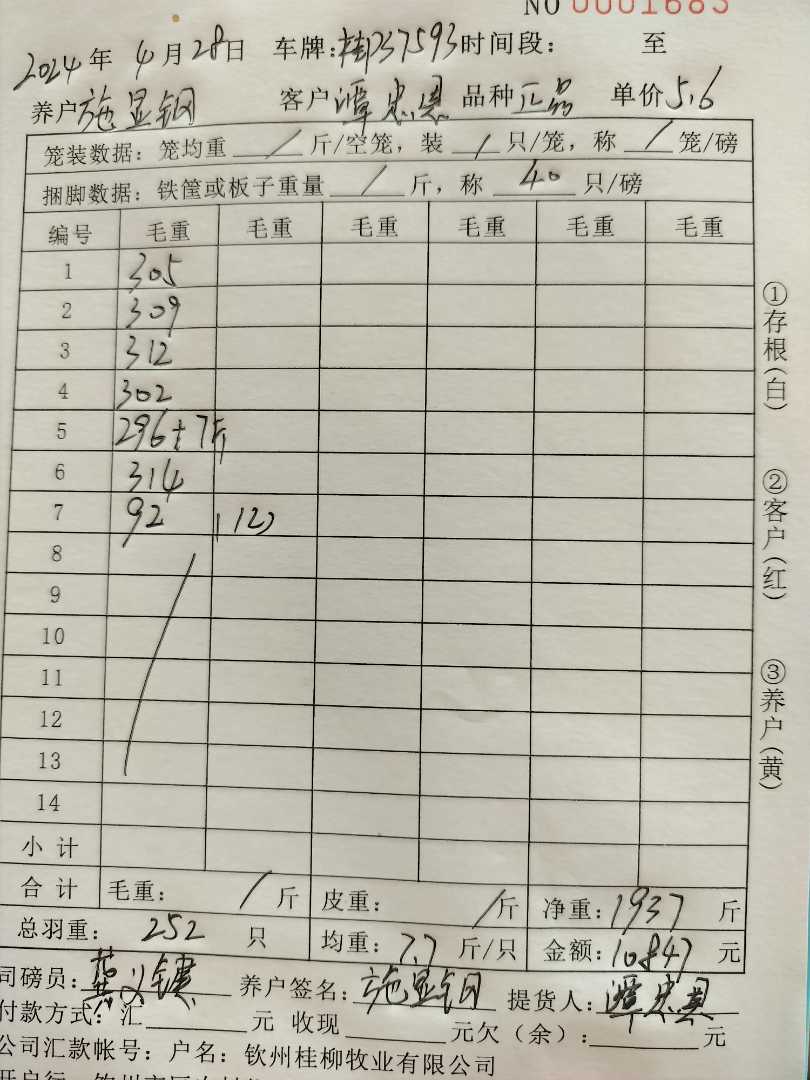 NO 0001683
2024年 4月28日 车牌:桂D37593时间段: 至
养户施显钢 客户谭忠恩 品种正品 单价5.6
笼装数据: 笼均重 / 斤/空笼, 装 / 只/笼, 称 / 笼/磅
捆脚数据: 铁筐或板子重量 / 斤, 称 40 只/磅
编号 毛重 毛重 毛重 毛重 毛重 毛重
1 305
2 309
3 312
4 302
5 296+7斤
6 314
7 92 (12)
8
9
10
11
12
13
14
小计
合计 毛重: / 斤 皮重: / 斤 净重:1937 斤
总羽重: 252 只 均重: 7.7 斤/只 金额:10847 元
司磅员: 养户签名:施显钢 提货人:谭忠恩
付款方式: 汇 元 收现 元欠(余): 元
公司汇款帐号: 户名: 钦州桂柳牧业有限公司
①存根(白)
②客户(红)
③养户(黄)